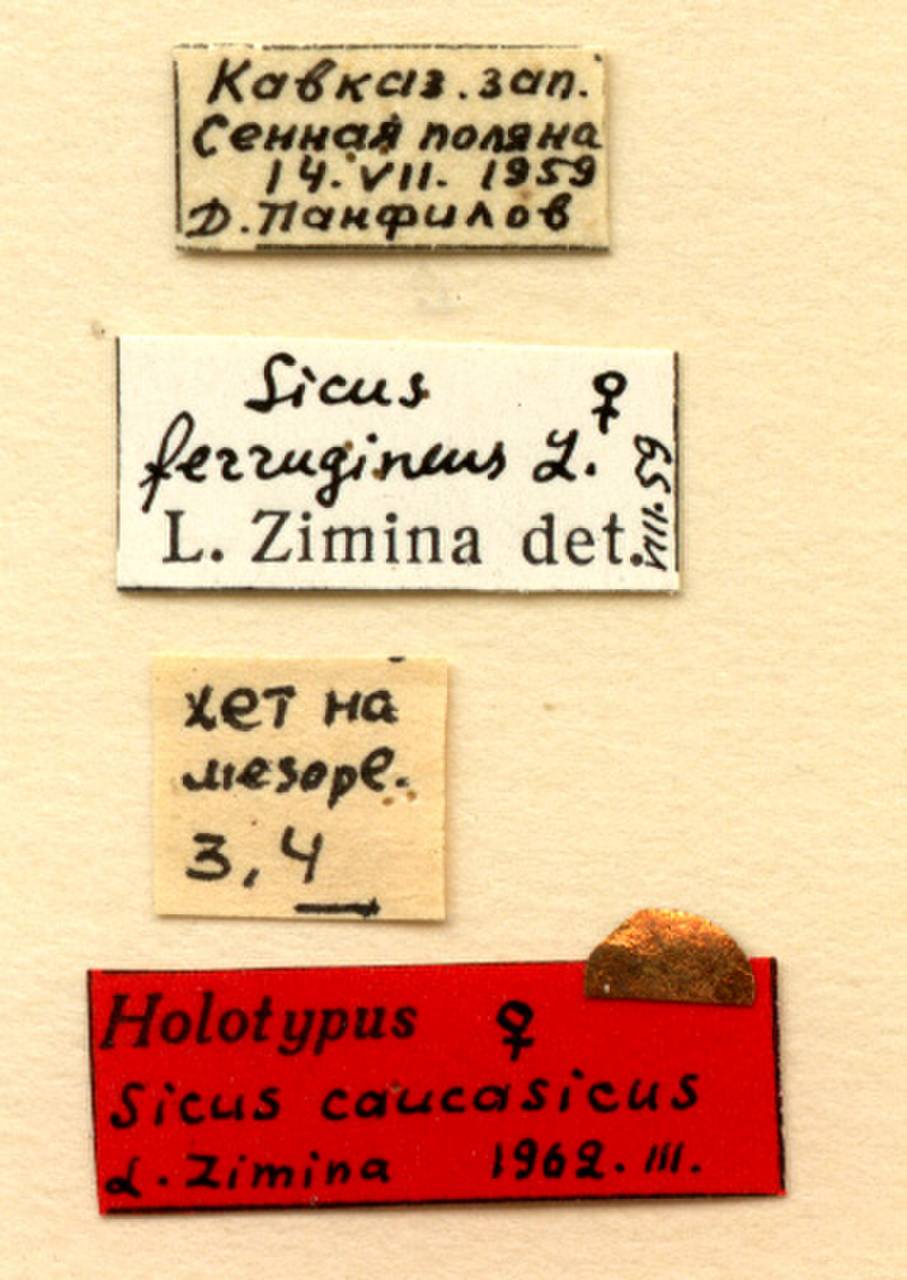 Кавказ. зап.
Сенная поляна
14. VII. 1959
Д. Панфилов
Sicus ♀
ferrugineus L.
L. Zimina det.
VIII. 59
хет на
мезорl.
3, 4
Holotypus ♀
Sicus caucasicus
L. Zimina 1962. III.